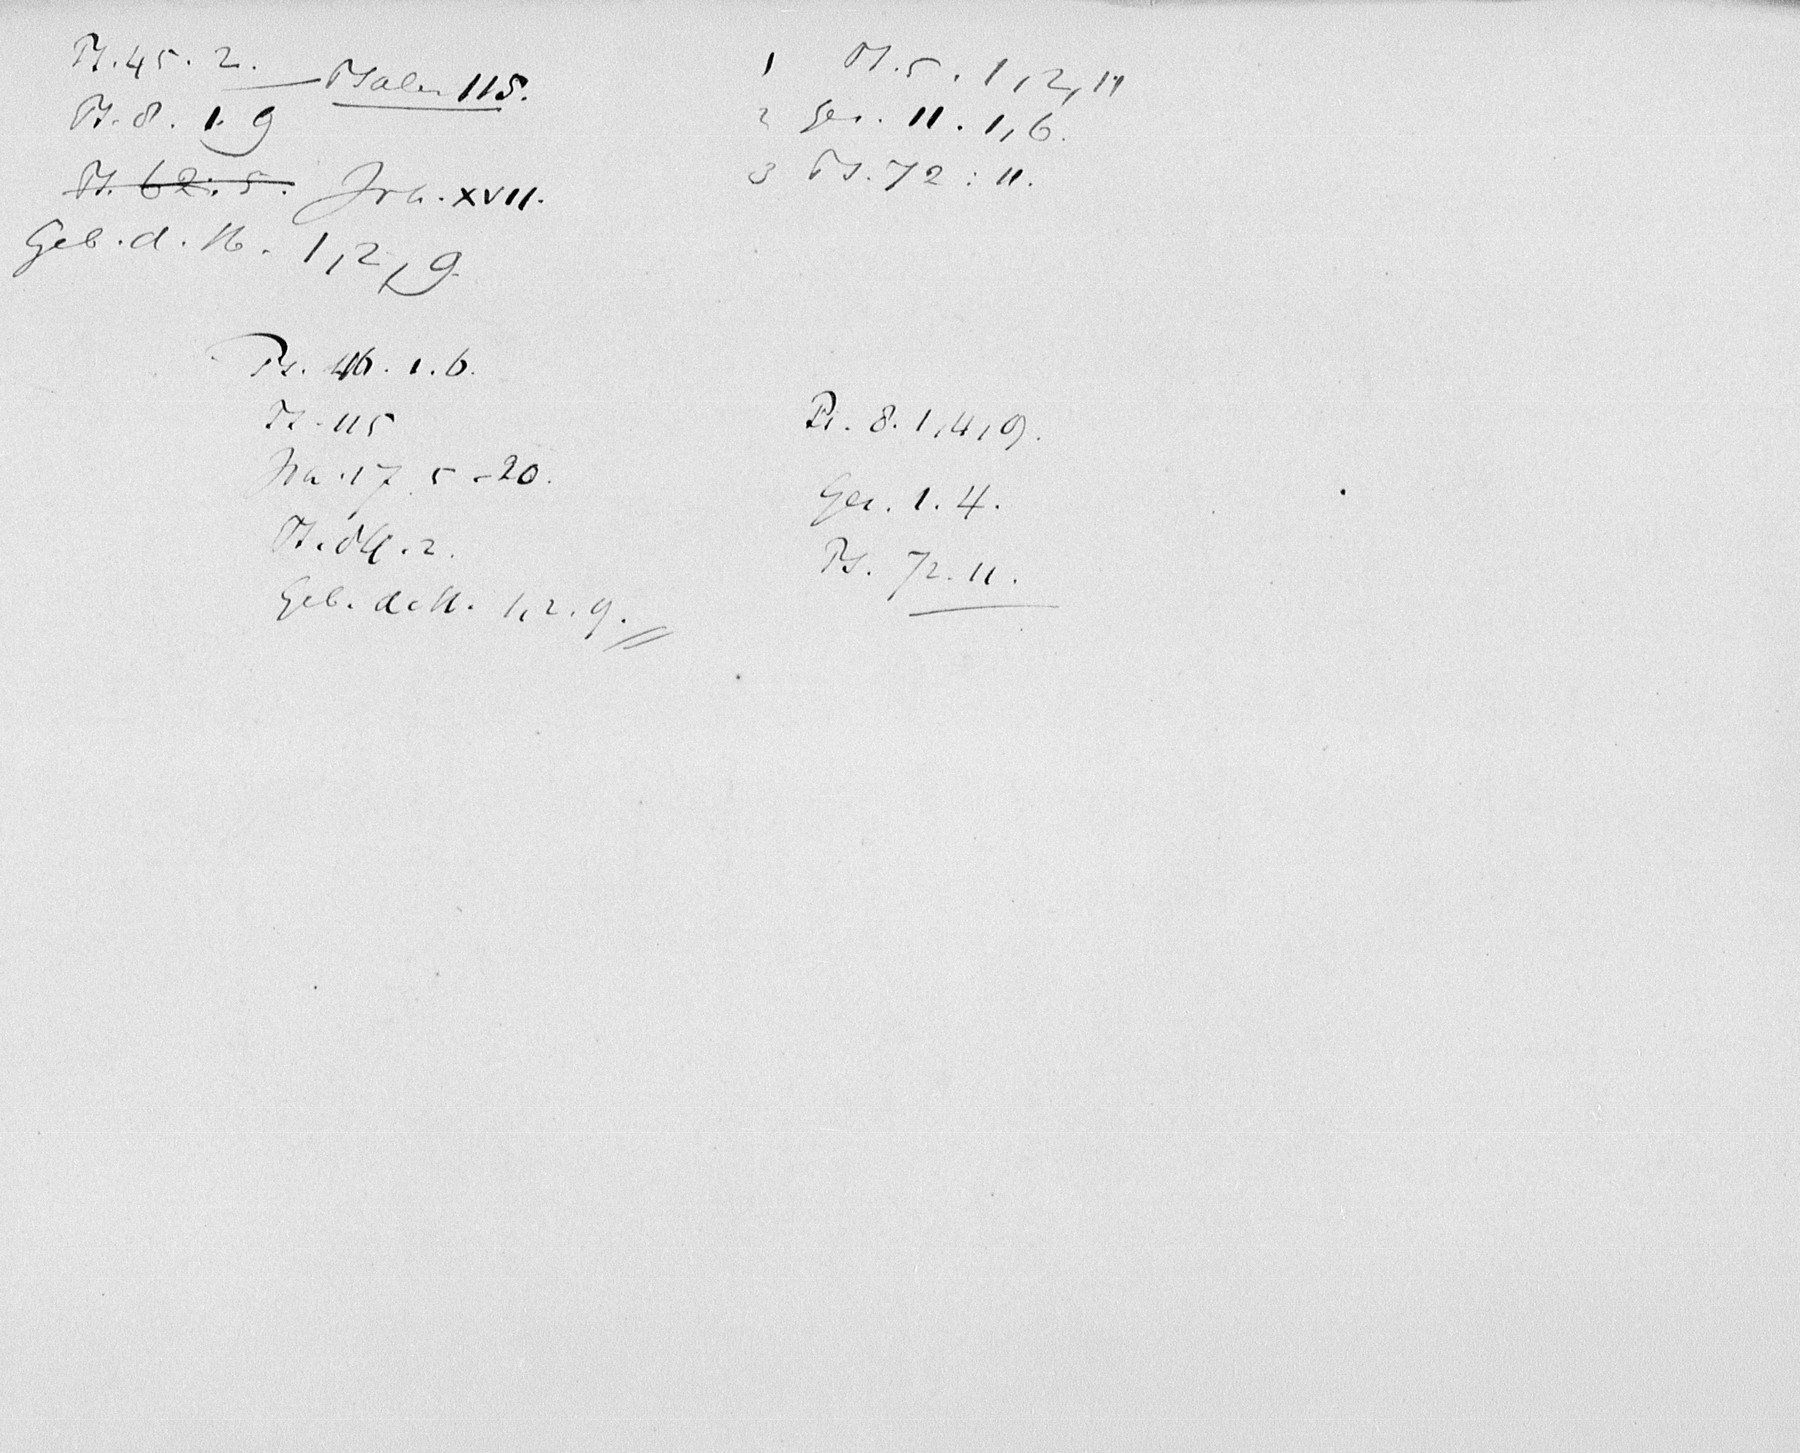 Ps. 45. 2.
Psalm 115.
Ps. 8. 1. 9
Ps. 62. 5. Joh. XVII.
Geb. d. H. 1, 2, 9.
Ps. 46. 1. 6.
Ps. 115
Joh. 17 5-20.
Ps. 2.
Geb. d. H. 1, 2. 9.
1 Ps. 5. 1, 2, 11
2 Gez. 11. 1, 6.
3 Ps. 72: 11.
Ps. 8. 1, 4, 9.
Gez. 1. 4.
Ps. 72. 11.